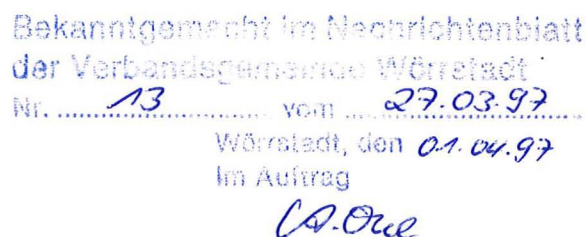 Bekanntgemacht im Nachrichtenblatt
der Verbandsgemeinde Wörrstadt
Nr. 13 vom 27.03.97
Wörrstadt, den 01.04.97
Im Auftrag